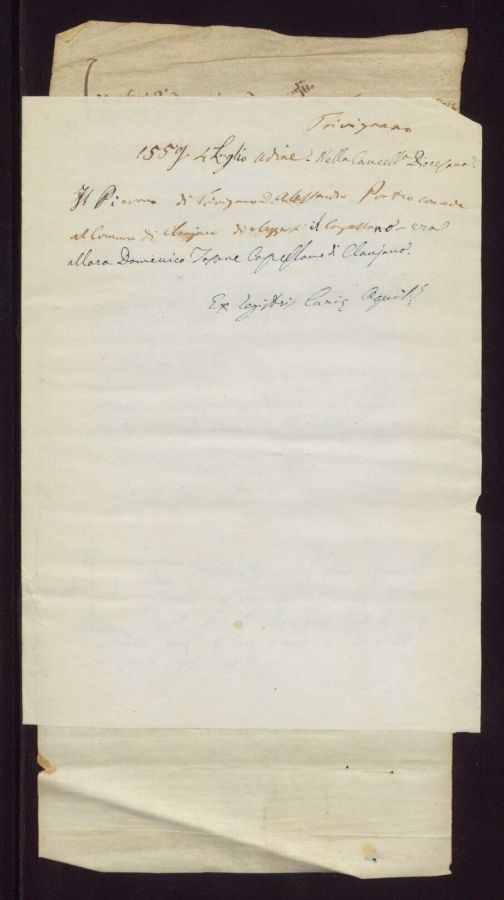 Trivignano
1559 4 Luglio Udine. Nella Cancell.ª Diocesana.
Il Pievano di Trivignano D. Alessandro Porti concede
al Comune di Clauiano di eleggersi il Capellano - era
allora Domenico Capellano di Clauiano.
Ex registris Curię Aquil.ę